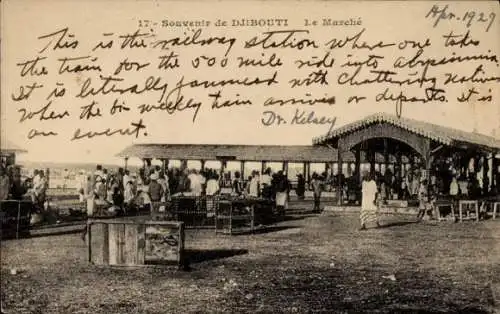 17 - Souvenir de DJIBOUTI Le Marché
Apr. 1929
This is the railway station where one takes
the train for the 500 mile ride into abyssinia
It is literally jammed with chattering natives
when the bi weekly train arrives or departs. It is
an event.
Dr. Kelsey